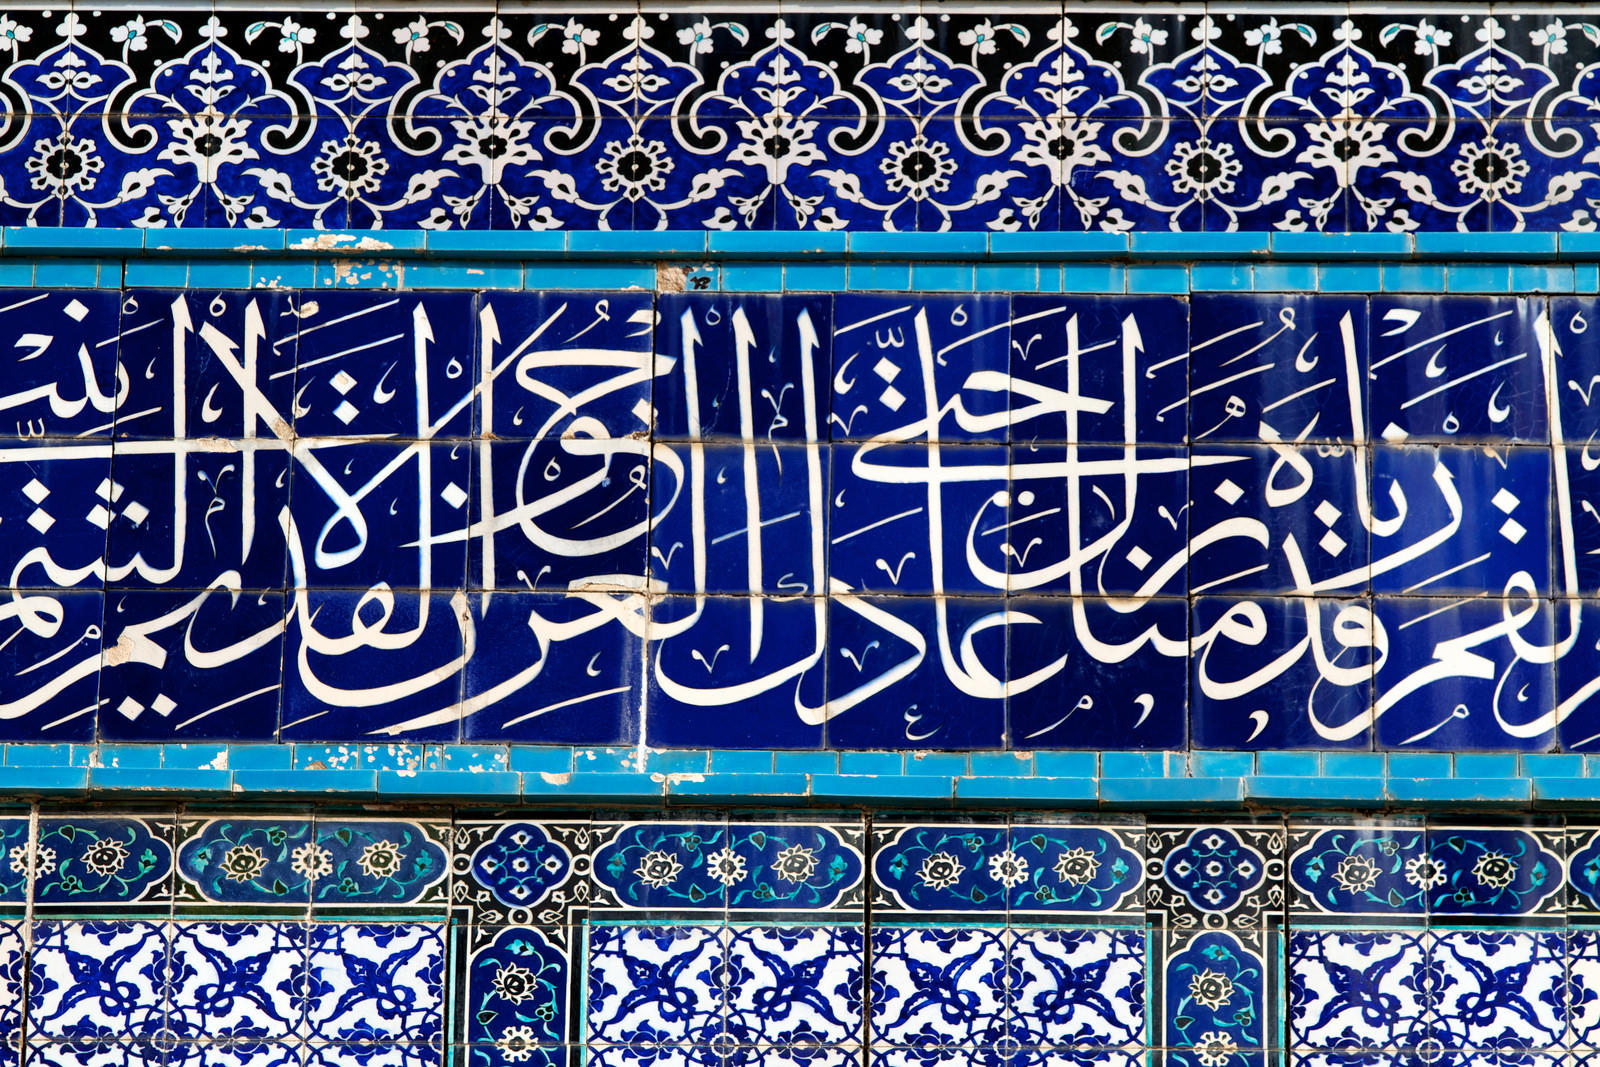 والقمر قدرناه منازل حتى عاد كالعرجون القديم لا الشمس ينب